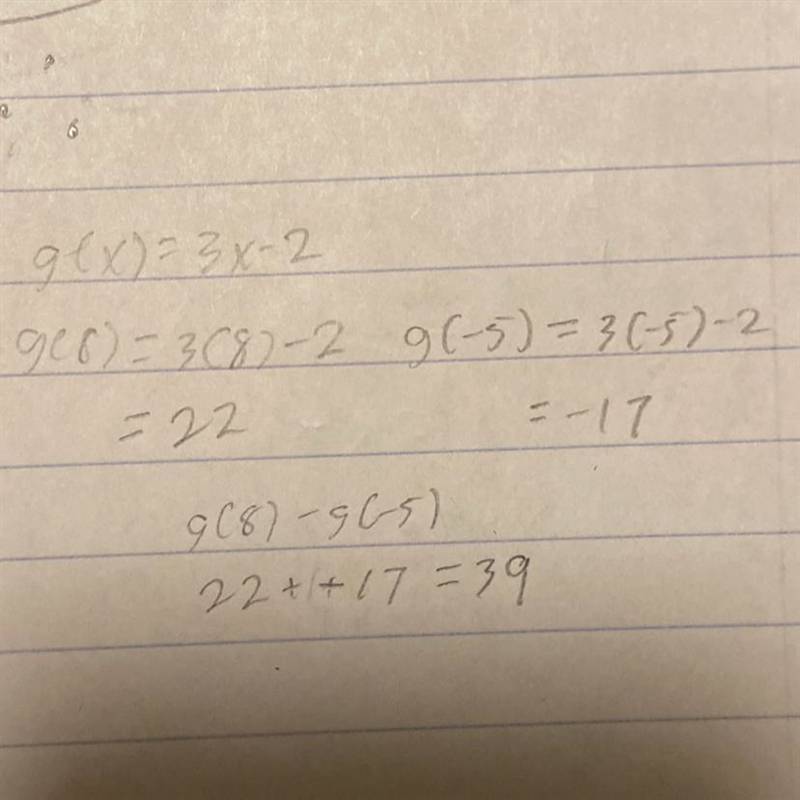 g(x) = 3x - 2
g(8) = 3(8) - 2 g(-5) = 3(-5) - 2
= 22 = -17
g(8) - g(-5)
22 + + 17 = 39